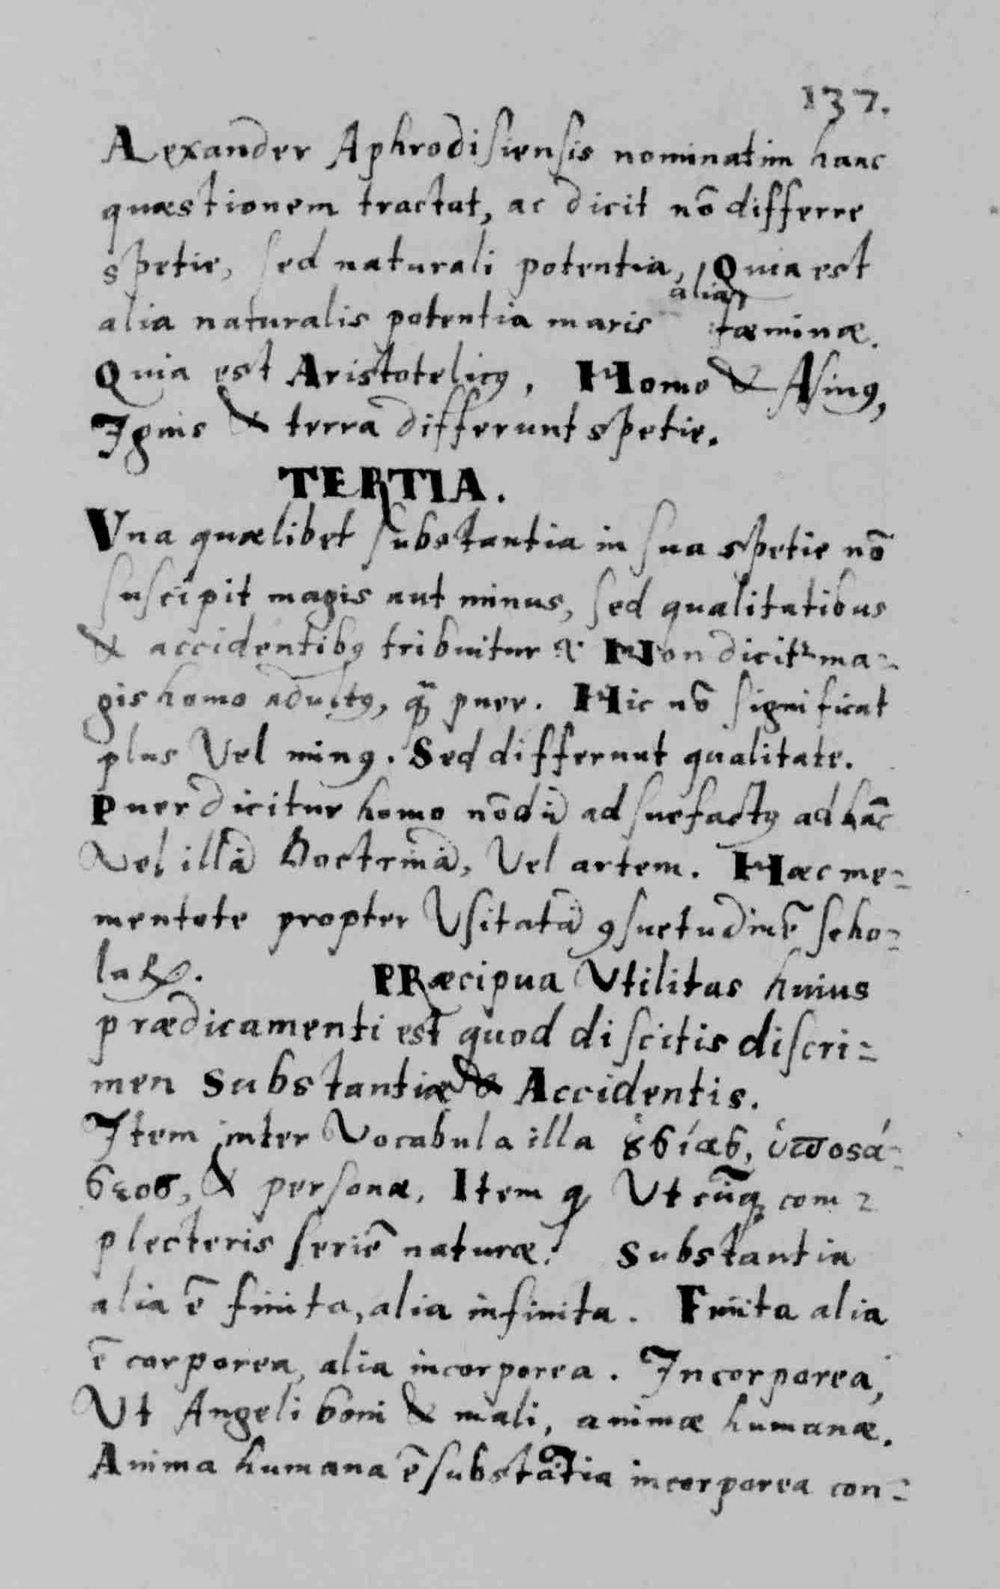 137.
Alexander Aphrodisiensis nominatim hanc
quæstionem tractat, ac dicit nō differre
spetie, sed naturali potentia, Quia est
alia naturalis potentia maris alia fæminæ.
Quia est Aristotelicꝰ, Homo & Asinꝰ,
Ignis & terra differunt spetie.
TERTIA.
Vna quælibet substantia in sua spetie nō
suscipit magis aut minus, sed qualitatibus
& accidentibꝰ tribuitur &. Non dicit᷑ ma=
gis homo adultꝰ, q̃ꝫ puer. Hic nō significat
plus Vel minꝰ. Sed differunt qualitate.
Puer dicitur homo nōdū adsuefactꝰ ad hāc
Vel illā Doctrinā, Vel artem. Hæc me=
mentote propter Vsitatā ꝯsuetudinē scho=
laꝝ. PRæcipua Vtilitas huius
prædicamenti est quod discitis discri=
men Substantiæ & Accidentis.
Item inter Vocabula illa ȣϭίας, ὑϖοσά=
ϭεος, & personæ, Item ꝙ Vtcūqꝫ com=
plecteris seriē naturæ. Substantia
alia ē finita, alia infinita. Finita alia
ē corporea, alia incorporea. Incorporea,
Vt Angeli boni & mali, animæ humanæ.
Anima humana ē substātia incorporea con=